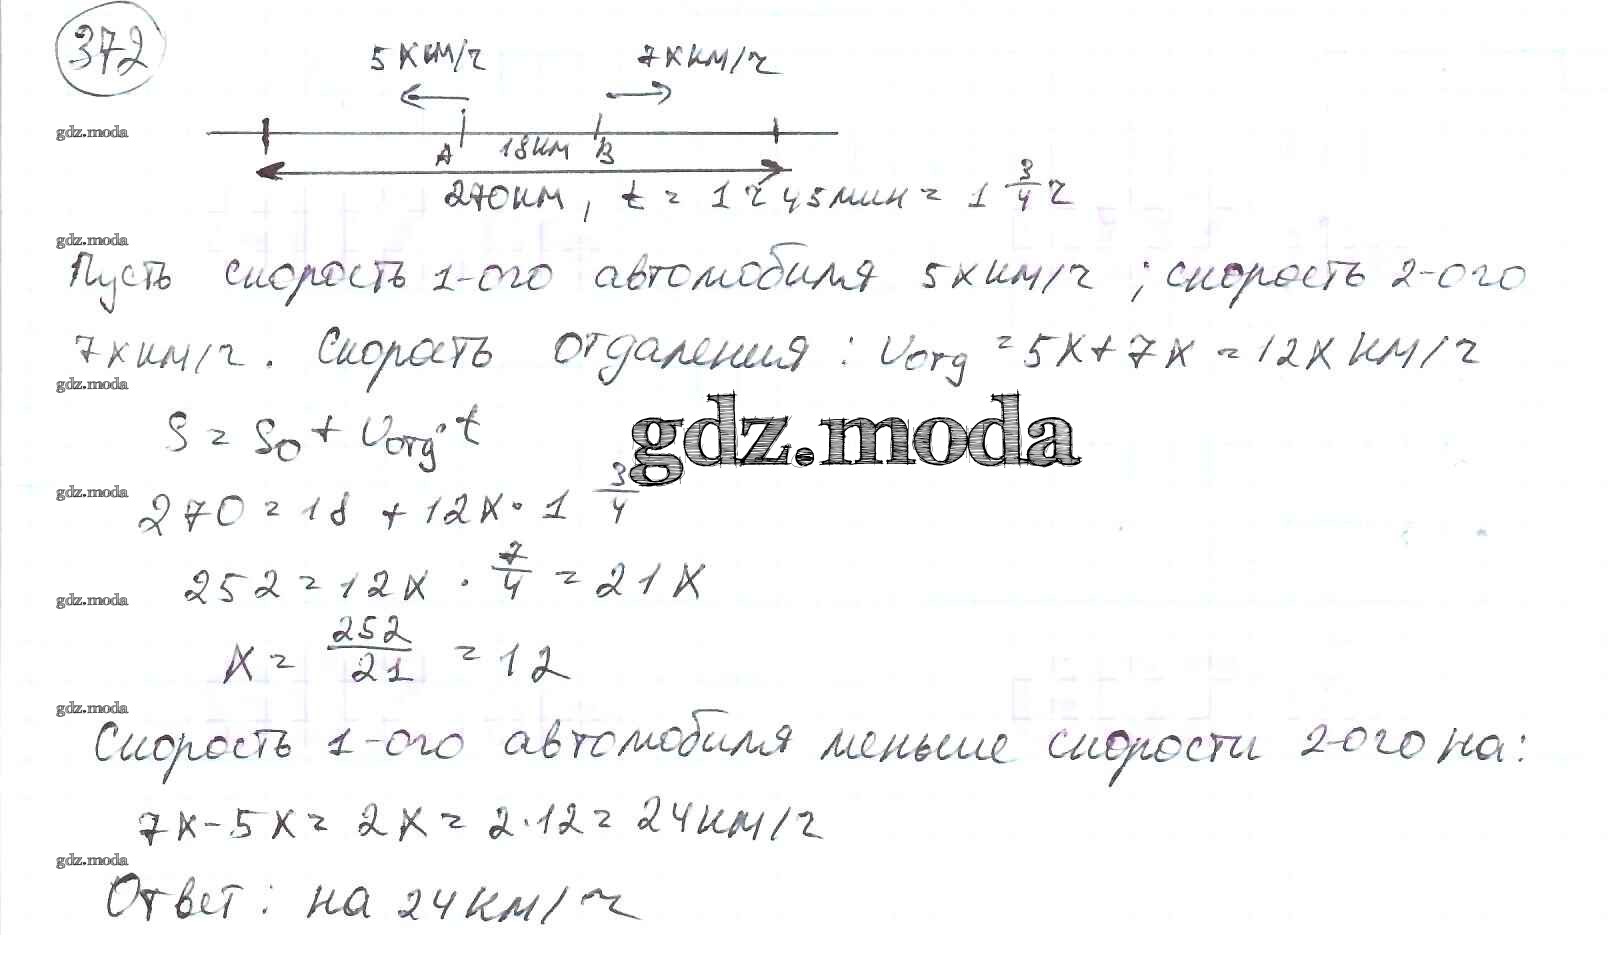 372
5х км/ч 7х км/ч
gdz.moda
A 18км B
270км, t = 1ч 45мин = 1 3/4 ч
gdz.moda
Пусть скорость 1-ого автомобиля 5х км/ч ; скорость 2-ого
7х км/ч. Скорость отдаления : Vотд = 5х + 7х = 12х км/ч
gdz.moda
S = S0 + Vотд · t
gdz.moda
gdz.moda
270 = 18 + 12х · 1 3/4
252 = 12х · 7/4 = 21х
gdz.moda
х = 252/21 = 12
gdz.moda
Скорость 1-ого автомобиля меньше скорости 2-ого на:
7х - 5х = 2х = 2·12 = 24км/ч
gdz.moda
Ответ : на 24км/ч